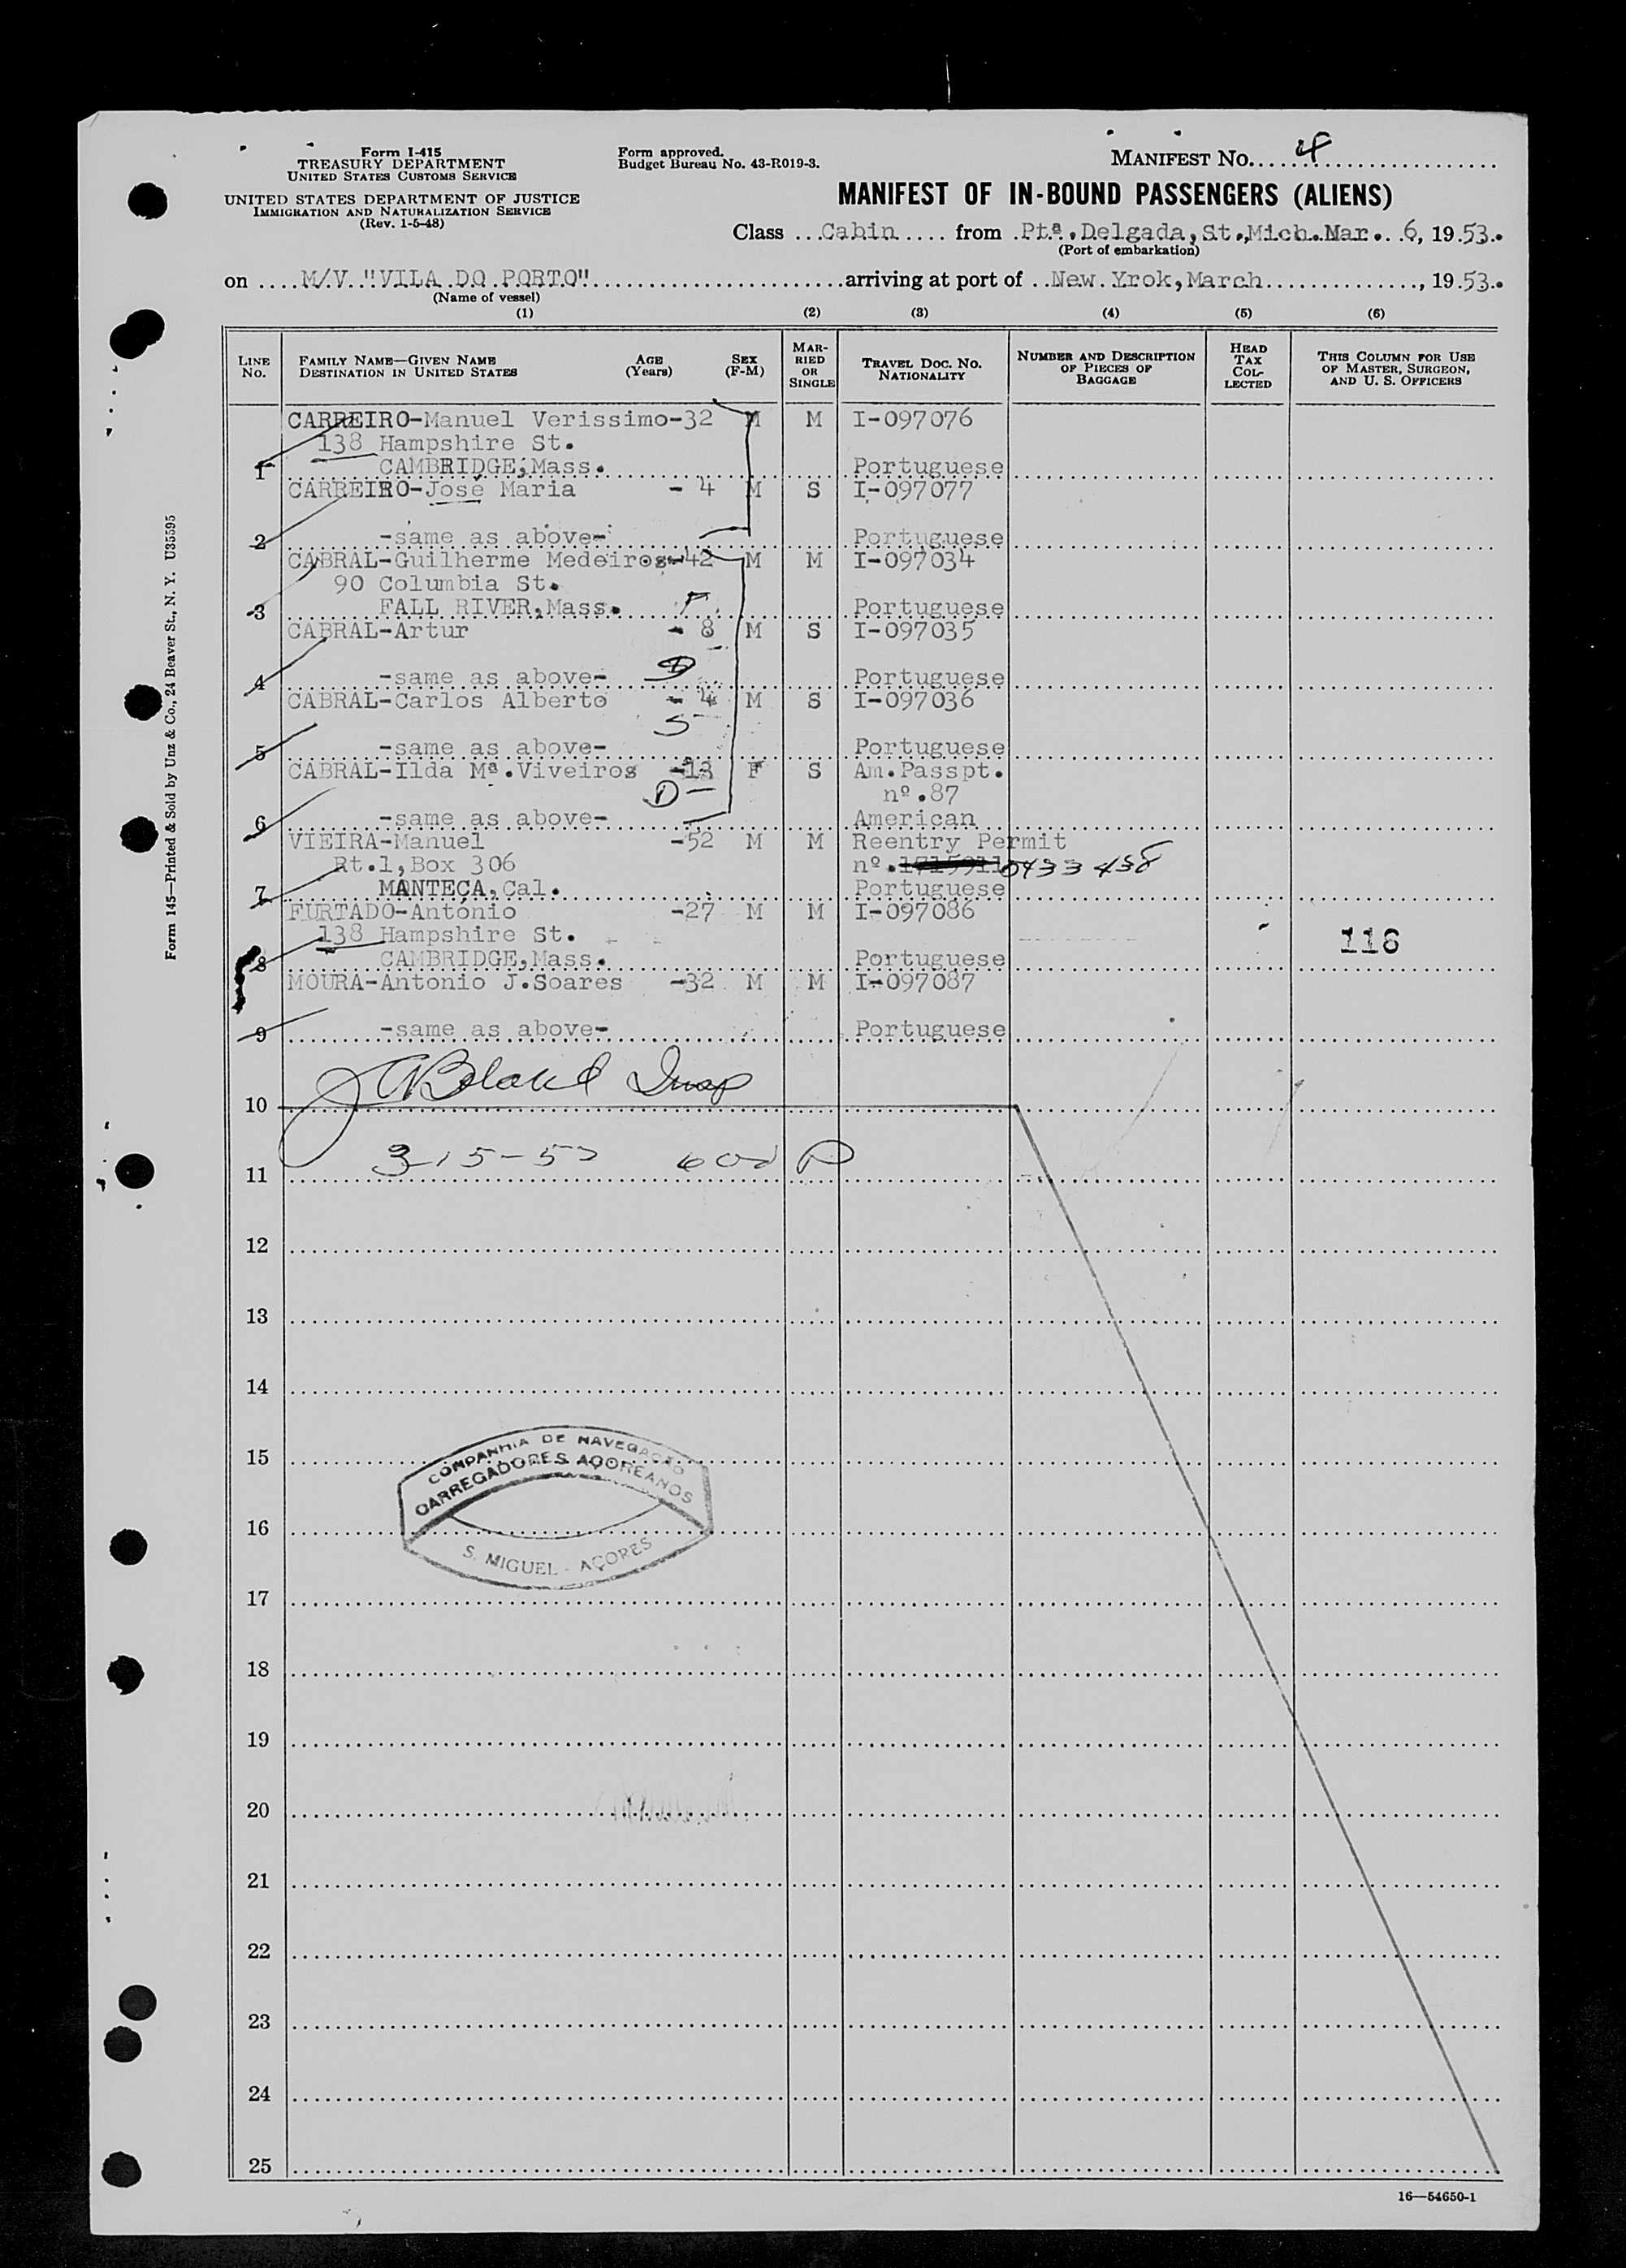 Form I-415
TREASURY DEPARTMENT
UNITED STATES CUSTOMS SERVICE
UNITED STATES DEPARTMENT OF JUSTICE
IMMIGRATION AND NATURALIZATION SERVICE
(Rev. 1-5-48)
Form approved.
Budget Bureau No. 43-R019-3.
MANIFEST No. 4
MANIFEST OF IN-BOUND PASSENGERS (ALIENS)
Class Cabin from Ptª.Delgada,St.Mich.Mar. 6, 1953.
(Port of embarkation)
on M/V."VILA DO PORTO" arriving at port of New.Yrok,March, 1953.
(Name of vessel)
(1) (2) (3) (4) (5) (6)
LINE No. FAMILY NAME—GIVEN NAME DESTINATION IN UNITED STATES AGE (Years) SEX (F-M) MARRIED OR SINGLE TRAVEL DOC. NO. NATIONALITY NUMBER AND DESCRIPTION OF PIECES OF BAGGAGE HEAD TAX COLLECTED THIS COLUMN FOR USE OF MASTER, SURGEON, AND U. S. OFFICERS
CARREIRO-Manuel Verissimo-32 M M I-097076
138 Hampshire St.
1 CAMBRIDGE,Mass. Portuguese
CARREIRO-José Maria - 4 M S I-097077
2 -same as above- Portuguese
CABRAL-Guilherme Medeiros-42 M M I-097034
90 Columbia St.
3 FALL RIVER,Mass. Portuguese
CABRAL-Artur - 8 M S I-097035
4 -same as above- Portuguese
CABRAL-Carlos Alberto - 4 M S I-097036
5
5 -same as above- Portuguese
CABRAL-Ilda Mª.Viveiros -13 F S Am.Passpt.
nº.87
6 -same as above- American
VIEIRA-Manuel -52 M M Reentry Permit
Rt.1,Box 306 nº. 0433438
7 MANTECA,Cal. Portuguese
FURTADO-António -27 M M I-097086
138 Hampshire St. 116
8 CAMBRIDGE,Mass. Portuguese
MOURA-Antonio J.Soares -32 M M I-097087
9 -same as above- Portuguese
10
11 3-15-53
12
13
14
15
16
17
18
19
20
21
22
23
24
25
COMPANHIA DE NAVEGAÇÃO
CARREGADORES AÇOREANOS
S. MIGUEL - AÇORES
Form 145—Printed & Sold by Unz & Co., 24 Beaver St., N. Y. U35595
16—54650-1